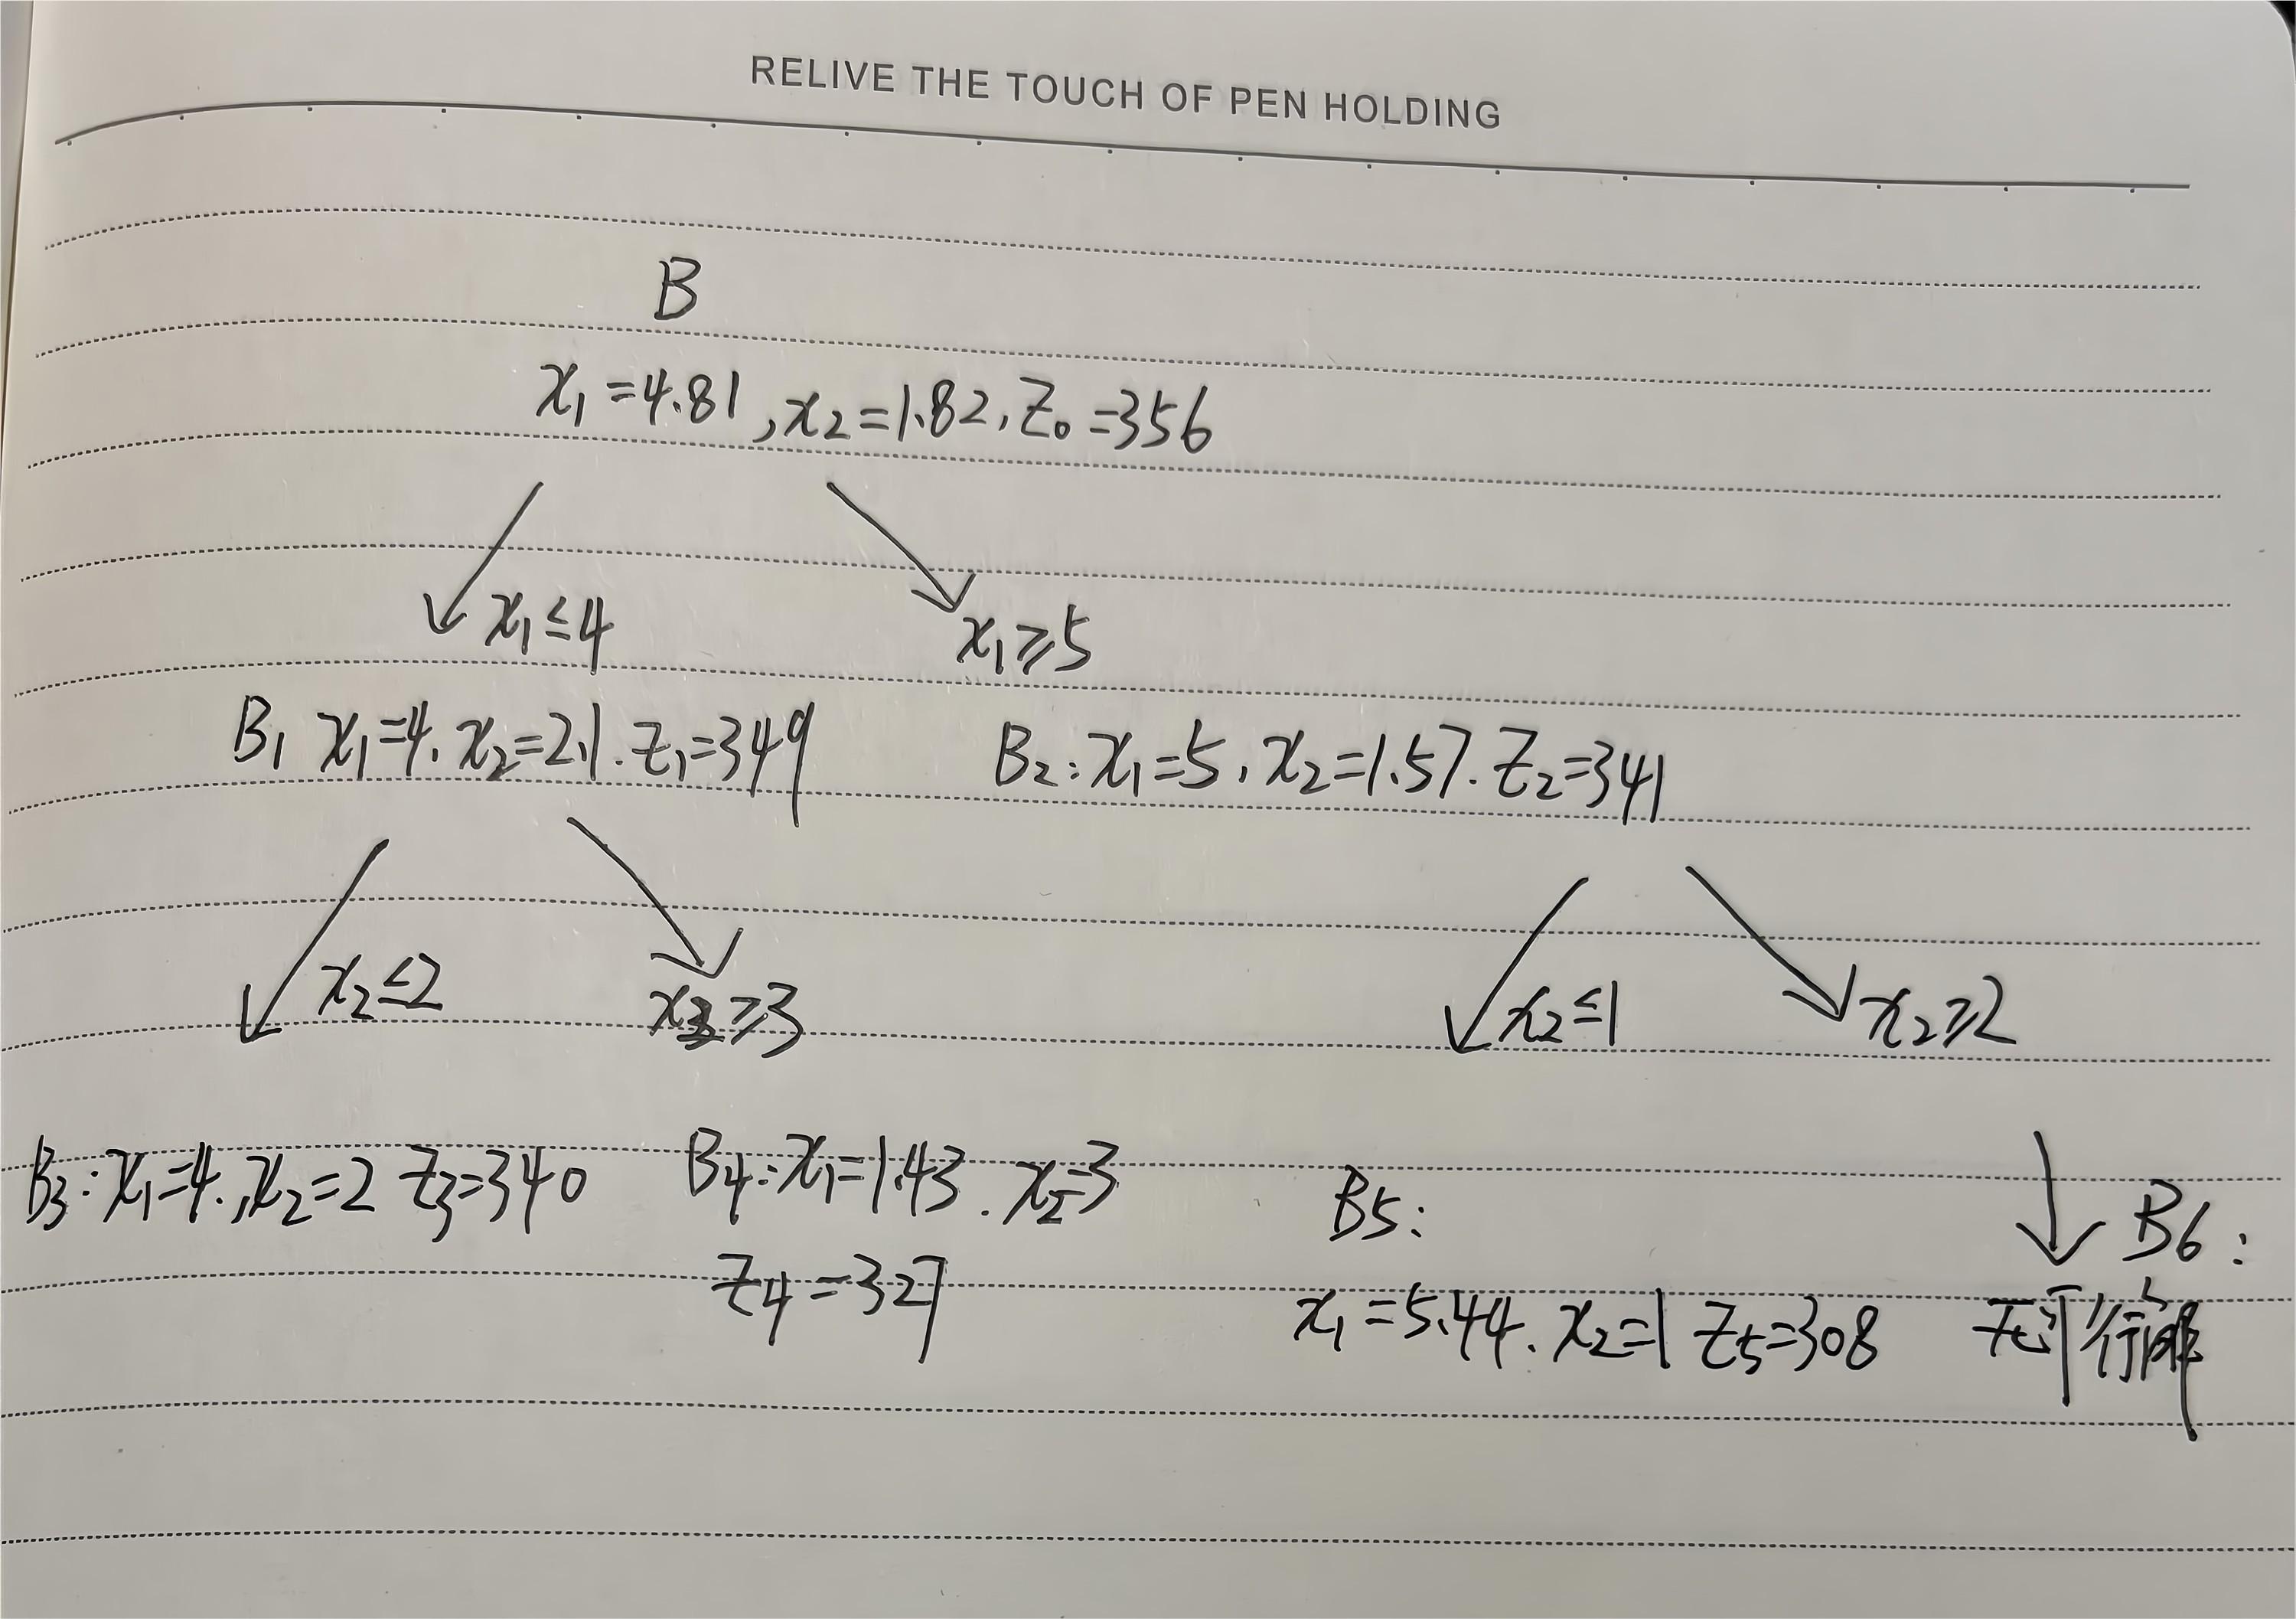 RELIVE THE TOUCH OF PEN HOLDING
B
x₁=4.81, x₂=1.82, Z₀=356
x₁≤4
x₁≥5
B₁ x₁=4. x₂=2.1. Z₁=349
B₂: x₁=5, x₂=1.57. Z₂=341
x₂≤2
x₂≥3
x₂≤1
x₂≥2
B₃: x₁=4., x₂=2 Z₃=340
B₄: x₁=1.43. x₂=3
Z₄=327
B₅:
x₁=5.44. x₂=1 Z₅=308
B₆:
无可行解